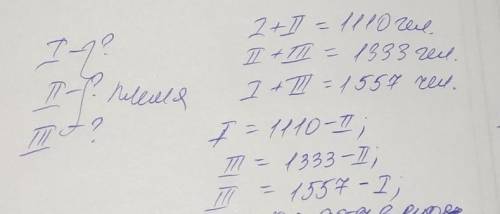 I - ?
II - ? племя
III - ?
I + II = 1110 чел.
II + III = 1333 чел.
I + III = 1557 чел.
I = 1110 - II;
III = 1333 - II;
III = 1557 - I;